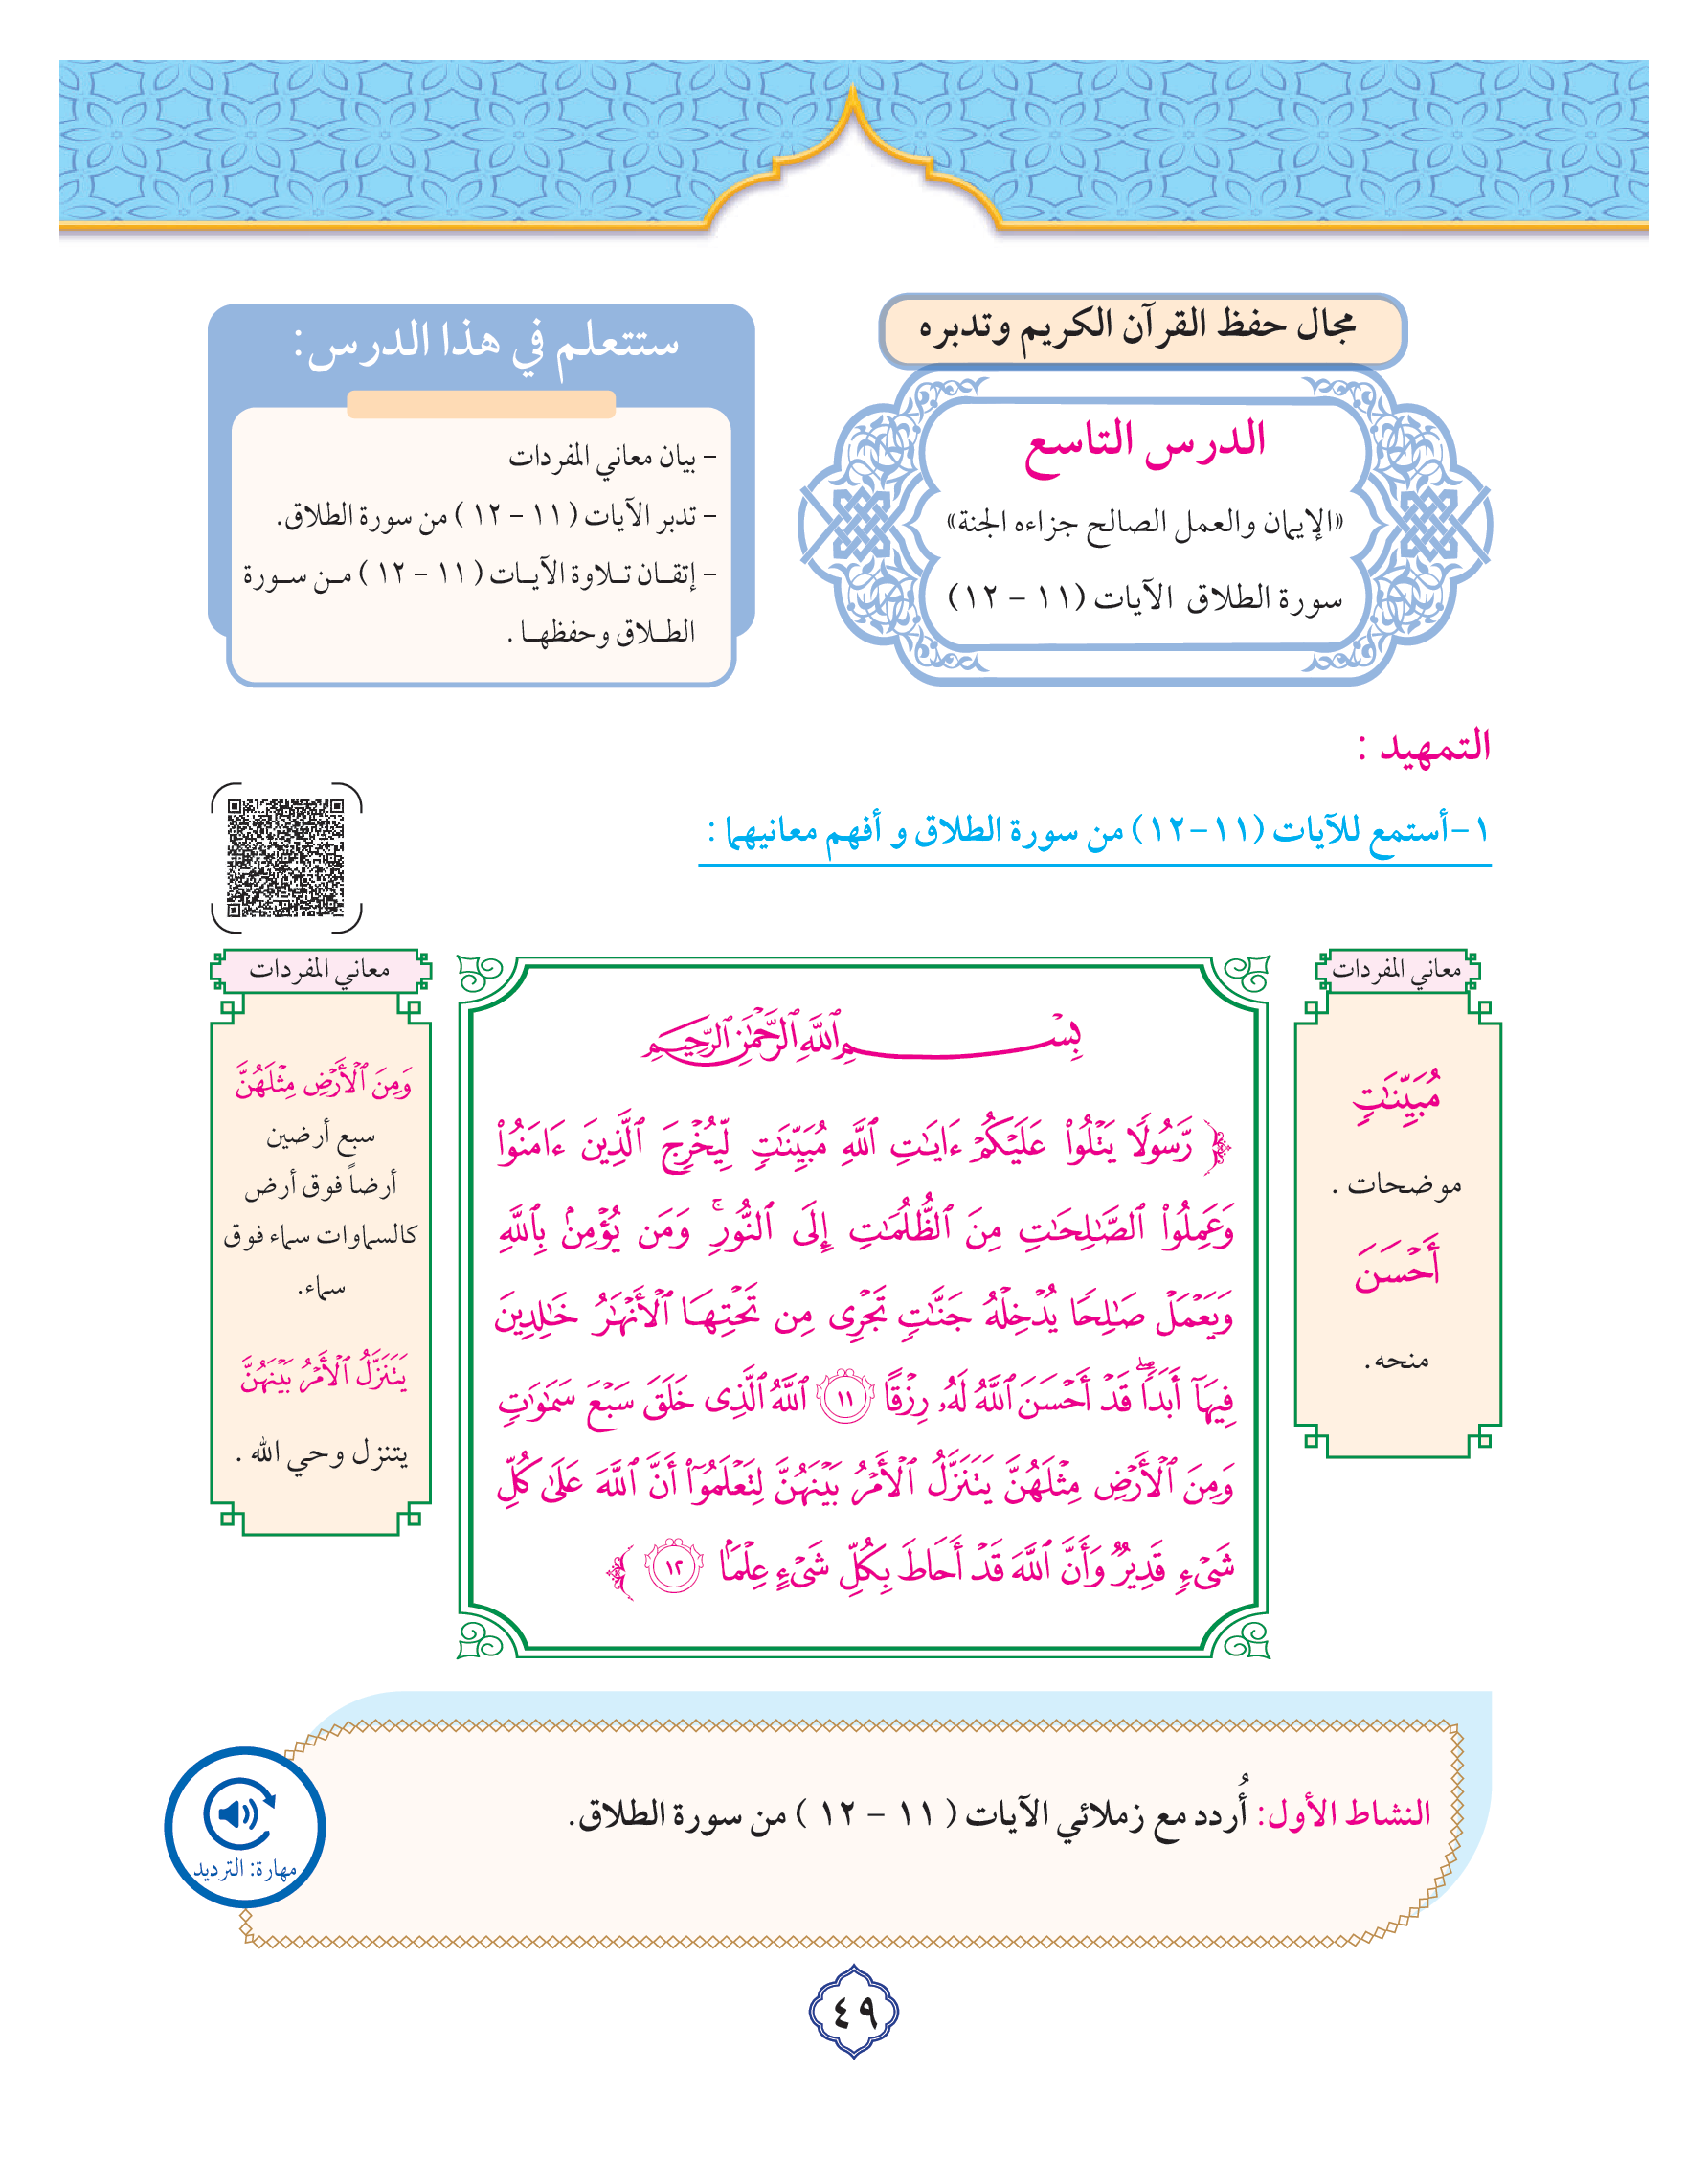 مجال حفظ القرآن الكريم وتدبره
الدرس التاسع
«الإيمان والعمل الصالح جزاءه الجنة»
سورة الطلاق الآيات (١١ - ١٢)
ستتعلم في هذا الدرس:
- بيان معاني المفردات
- تدبر الآيات ( ١١ - ١٢ ) من سورة الطلاق.
- إتقـان تـلاوة الآيـات ( ١١ - ١٢ ) مـن سـورة
الطـلاق وحفظهـا .
التمهيد :
١-أستمع للآيات (١١-١٢) من سورة الطلاق و أفهم معانيهما :
معاني المفردات
مُبَيِّنَٰتٖ
موضحات .
أَحۡسَنَ
منحه.
بِسۡمِ ٱللَّهِ ٱلرَّحۡمَٰنِ ٱلرَّحِيمِ
﴿ رَّسُولٗا يَتۡلُواْ عَلَيۡكُمۡ ءَايَٰتِ ٱللَّهِ مُبَيِّنَٰتٖ لِّيُخۡرِجَ ٱلَّذِينَ ءَامَنُواْ
وَعَمِلُواْ ٱلصَّٰلِحَٰتِ مِنَ ٱلظُّلُمَٰتِ إِلَى ٱلنُّورِۚ وَمَن يُؤۡمِنۢ بِٱللَّهِ
وَيَعۡمَلۡ صَٰلِحٗا يُدۡخِلۡهُ جَنَّٰتٖ تَجۡرِي مِن تَحۡتِهَا ٱلۡأَنۡهَٰرُ خَٰلِدِينَ
فِيهَآ أَبَدٗاۖ قَدۡ أَحۡسَنَ ٱللَّهُ لَهُۥ رِزۡقًا ١١ ٱللَّهُ ٱلَّذِي خَلَقَ سَبۡعَ سَمَٰوَٰتٖ
وَمِنَ ٱلۡأَرۡضِ مِثۡلَهُنَّ يَتَنَزَّلُ ٱلۡأَمۡرُ بَيۡنَهُنَّ لِتَعۡلَمُوٓاْ أَنَّ ٱللَّهَ عَلَىٰ كُلِّ
شَيۡءٖ قَدِيرٞ وَأَنَّ ٱللَّهَ قَدۡ أَحَاطَ بِكُلِّ شَيۡءٍ عِلۡمَۢا ١٢ ﴾
معاني المفردات
وَمِنَ ٱلۡأَرۡضِ مِثۡلَهُنَّ
سبع أرضين
أرضاً فوق أرض
كالسماوات سماء فوق
سماء.
يَتَنَزَّلُ ٱلۡأَمۡرُ بَيۡنَهُنَّ
يتنزل وحي الله .
النشاط الأول: أُردد مع زملائي الآيات ( ١١ - ١٢ ) من سورة الطلاق.
مهارة: الترديد
٤٩